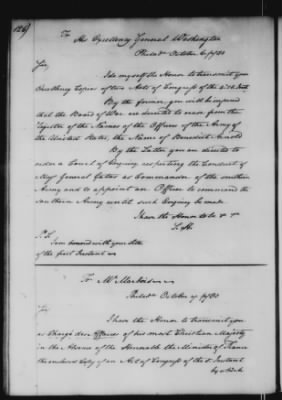 129
To His Excellency General Washington
Philad. October 6. 1780
Sir,
I do myself the Honor to transmit you
Inclosing Copies of two Acts of Congress of the 4. & 5. Inst.
By the former, you will be informed
that the Board of War are directed to erase from the
Register of the Names of the Officers of the Army of
the United States, the Name of Benedict Arnold
By the Latter you are directed to
order a Court of Enquiry respecting the Conduct of
Majr General Gates as Commander of the southern
Army and to appoint an Officer to command the
southern Army until such Enquiry be made
I have the Honor to be & &
S. H.
P.S.
I am honored with your Letter
of the first Instant
To Mr Marbois
Philad. October 7. 1780
Sir
I have the Honor to transmit you
as Chargé des Affaires of his most Christian Majesty
in the Absence of the Honorable the Minister of France
the enclosed Copy of an Act of Congress of the 5. Instant
by which